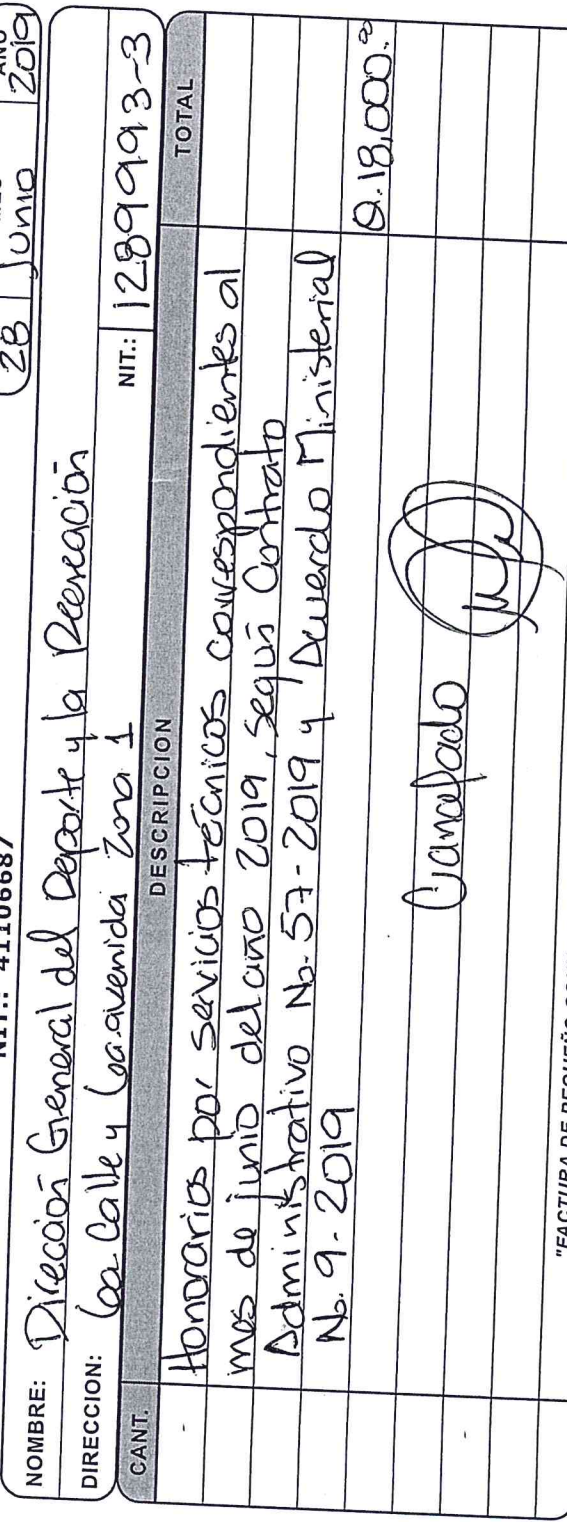 NIT.: 41106687
AÑO
28 Junio 2019
NOMBRE: Dirección General del Deporte y la Recreación
DIRECCION: 6a Calle y 6a avenida Zona 1 NIT.: 1289993-3
CANT. DESCRIPCION TOTAL
Honorarios por servicios técnicos correspondientes al
mes de junio del año 2019, según Contrato
Administrativo No. 57-2019 y Acuerdo Ministerial
No. 9-2019 Q.18,000.00
Cancelado
"FACTURA DE PEQUEÑO